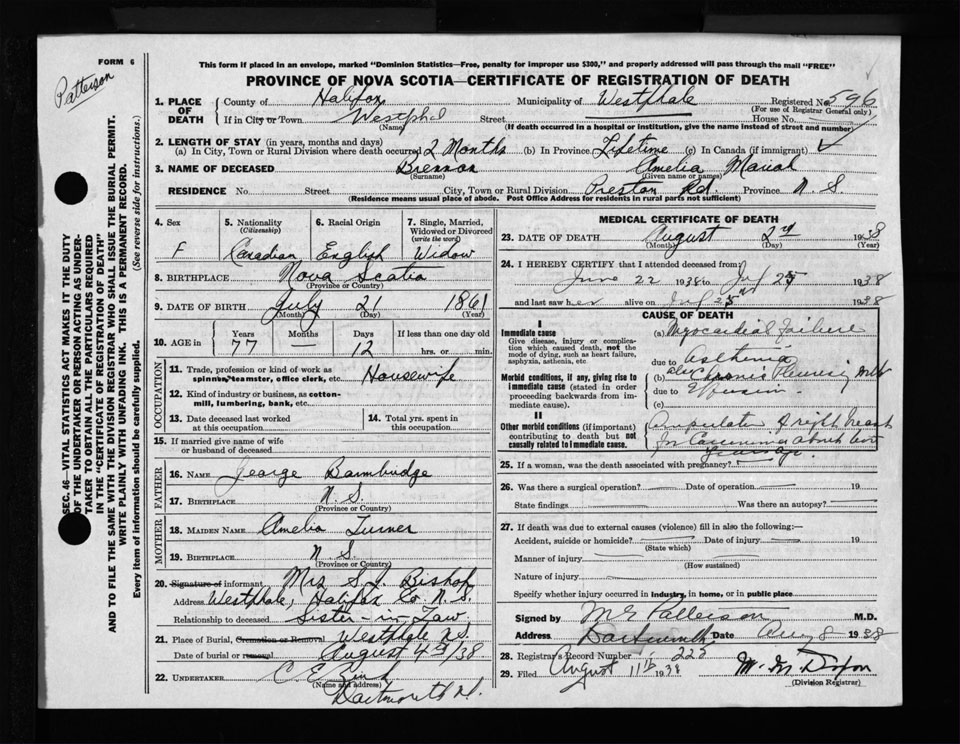 FORM 6
Patterson
This form if placed in an envelope, marked "Dominion Statistics—Free, penalty for improper use $300," and properly addressed will pass through the mail "FREE"
PROVINCE OF NOVA SCOTIA—CERTIFICATE OF REGISTRATION OF DEATH
SEC. 46—VITAL STATISTICS ACT MAKES IT THE DUTY
OF THE UNDERTAKER OR PERSON ACTING AS UNDER-
TAKER TO OBTAIN ALL THE PARTICULARS REQUIRED
IN THE "CERTIFICATE OF REGISTRATION OF DEATH"
AND TO FILE THE SAME WITH THE DIVISION REGISTRAR WHO SHALL ISSUE THE BURIAL PERMIT.
WRITE PLAINLY WITH UNFADING INK. THIS IS A PERMANENT RECORD.
Every item of information should be carefully supplied. (See reverse side for instructions.)
1. PLACE OF DEATH County of Halifax Municipality of Westphale Registered No. 596
(For use of Registrar General only)
If in City or Town Westphal Street House No.
(Name) (If death occurred in a hospital or institution, give the name instead of street and number)
2. LENGTH OF STAY (in years, months and days)
(a) In City, Town or Rural Division where death occurred 2 Months (b) In Province Lifetime (c) In Canada (if immigrant)
3. NAME OF DECEASED Brennan Amelia
(Surname) (Given name or names)
RESIDENCE No. Street City, Town or Rural Division Preston Rd. Province N. S.
(Residence means usual place of abode. Post Office Address for residents in rural parts not sufficient)
4. Sex F
5. Nationality (Citizenship) Canadian
6. Racial Origin English
7. Single, Married, Widowed or Divorced (write the word) Widow
8. BIRTHPLACE Nova Scotia
(Province or Country)
9. DATE OF BIRTH July 21 1861
(Month) (Day) (Year)
10. AGE in Years 77 Months Days 12 If less than one day old hrs. or min.
OCCUPATION
11. Trade, profession or kind of work as spinner, teamster, office clerk, etc. Housewife
12. Kind of industry or business, as cotton-mill, lumbering, bank, etc.
13. Date deceased last worked at this occupation
14. Total yrs. spent in this occupation
15. If married give name of wife or husband of deceased
FATHER
16. NAME George Bambridge
17. BIRTHPLACE N. S.
(Province or Country)
MOTHER
18. MAIDEN NAME Amelia Turner
19. BIRTHPLACE N. S.
(Province or Country)
20. Signature of informant Mrs S. J. Bishop
Address Westphale, Halifax Co. N. S.
Relationship to deceased Sister-in Law
21. Place of Burial, Cremation or Removal Westphale N.S.
Date of burial or removal August 4th/38
22. UNDERTAKER C. E.
(Name and address)
Dartmouth N.S.
MEDICAL CERTIFICATE OF DEATH
23. DATE OF DEATH August 2nd 1938
(Month) (Day) (Year)
24. I HEREBY CERTIFY that I attended deceased from
June 22 1938 to July 25 1938
and last saw her alive on July 25th 1938
CAUSE OF DEATH
I
Immediate cause
Give disease, injury or complication which caused death, not the mode of dying, such as heart failure, asphyxia, asthenia, etc.
(a) Myocardial failure
due to Asthenia
Morbid conditions, if any, giving rise to immediate cause (stated in order proceeding backwards from immediate cause).
(b) Chronic Pleurisy with
due to Effusion
(c)
II
Other morbid conditions (if important) contributing to death but not causally related to immediate cause.
Amputation of right breast
for Carcinoma about two
years ago.
25. If a woman, was the death associated with pregnancy?
26. Was there a surgical operation? Date of operation 19
State findings Was there an autopsy?
27. If death was due to external causes (violence) fill in also the following:—
Accident, suicide or homicide? Date of injury 19
(State which)
Manner of injury
(How sustained)
Nature of injury
Specify whether injury occurred in industry, in home, or in public place
Signed by M G Patterson M.D.
Address Dartmouth Date Aug 8 1938
28. Registrar's Record Number 225
29. Filed August 11th 1938 W. M. Dixon
(Division Registrar)